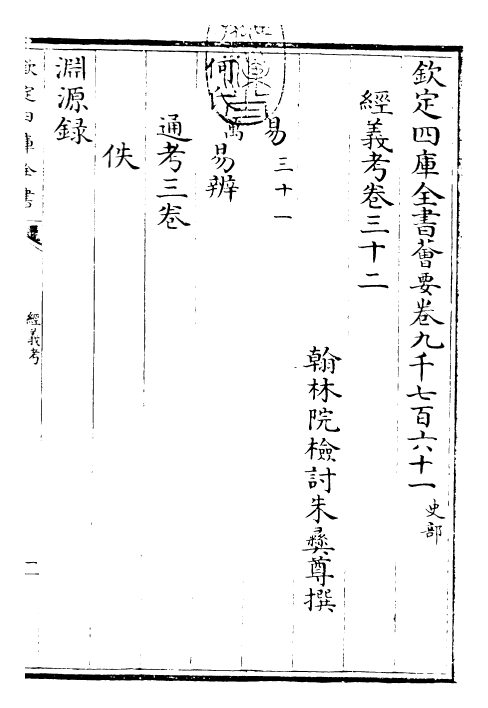 欽定四庫全書薈要卷九千七百六十一 史部
經義考卷三十二
翰林院檢討朱彝尊撰
易 三十一
何氏 萬 易辨
通考三卷
佚
淵源錄
欽定四庫全書
經義考
一